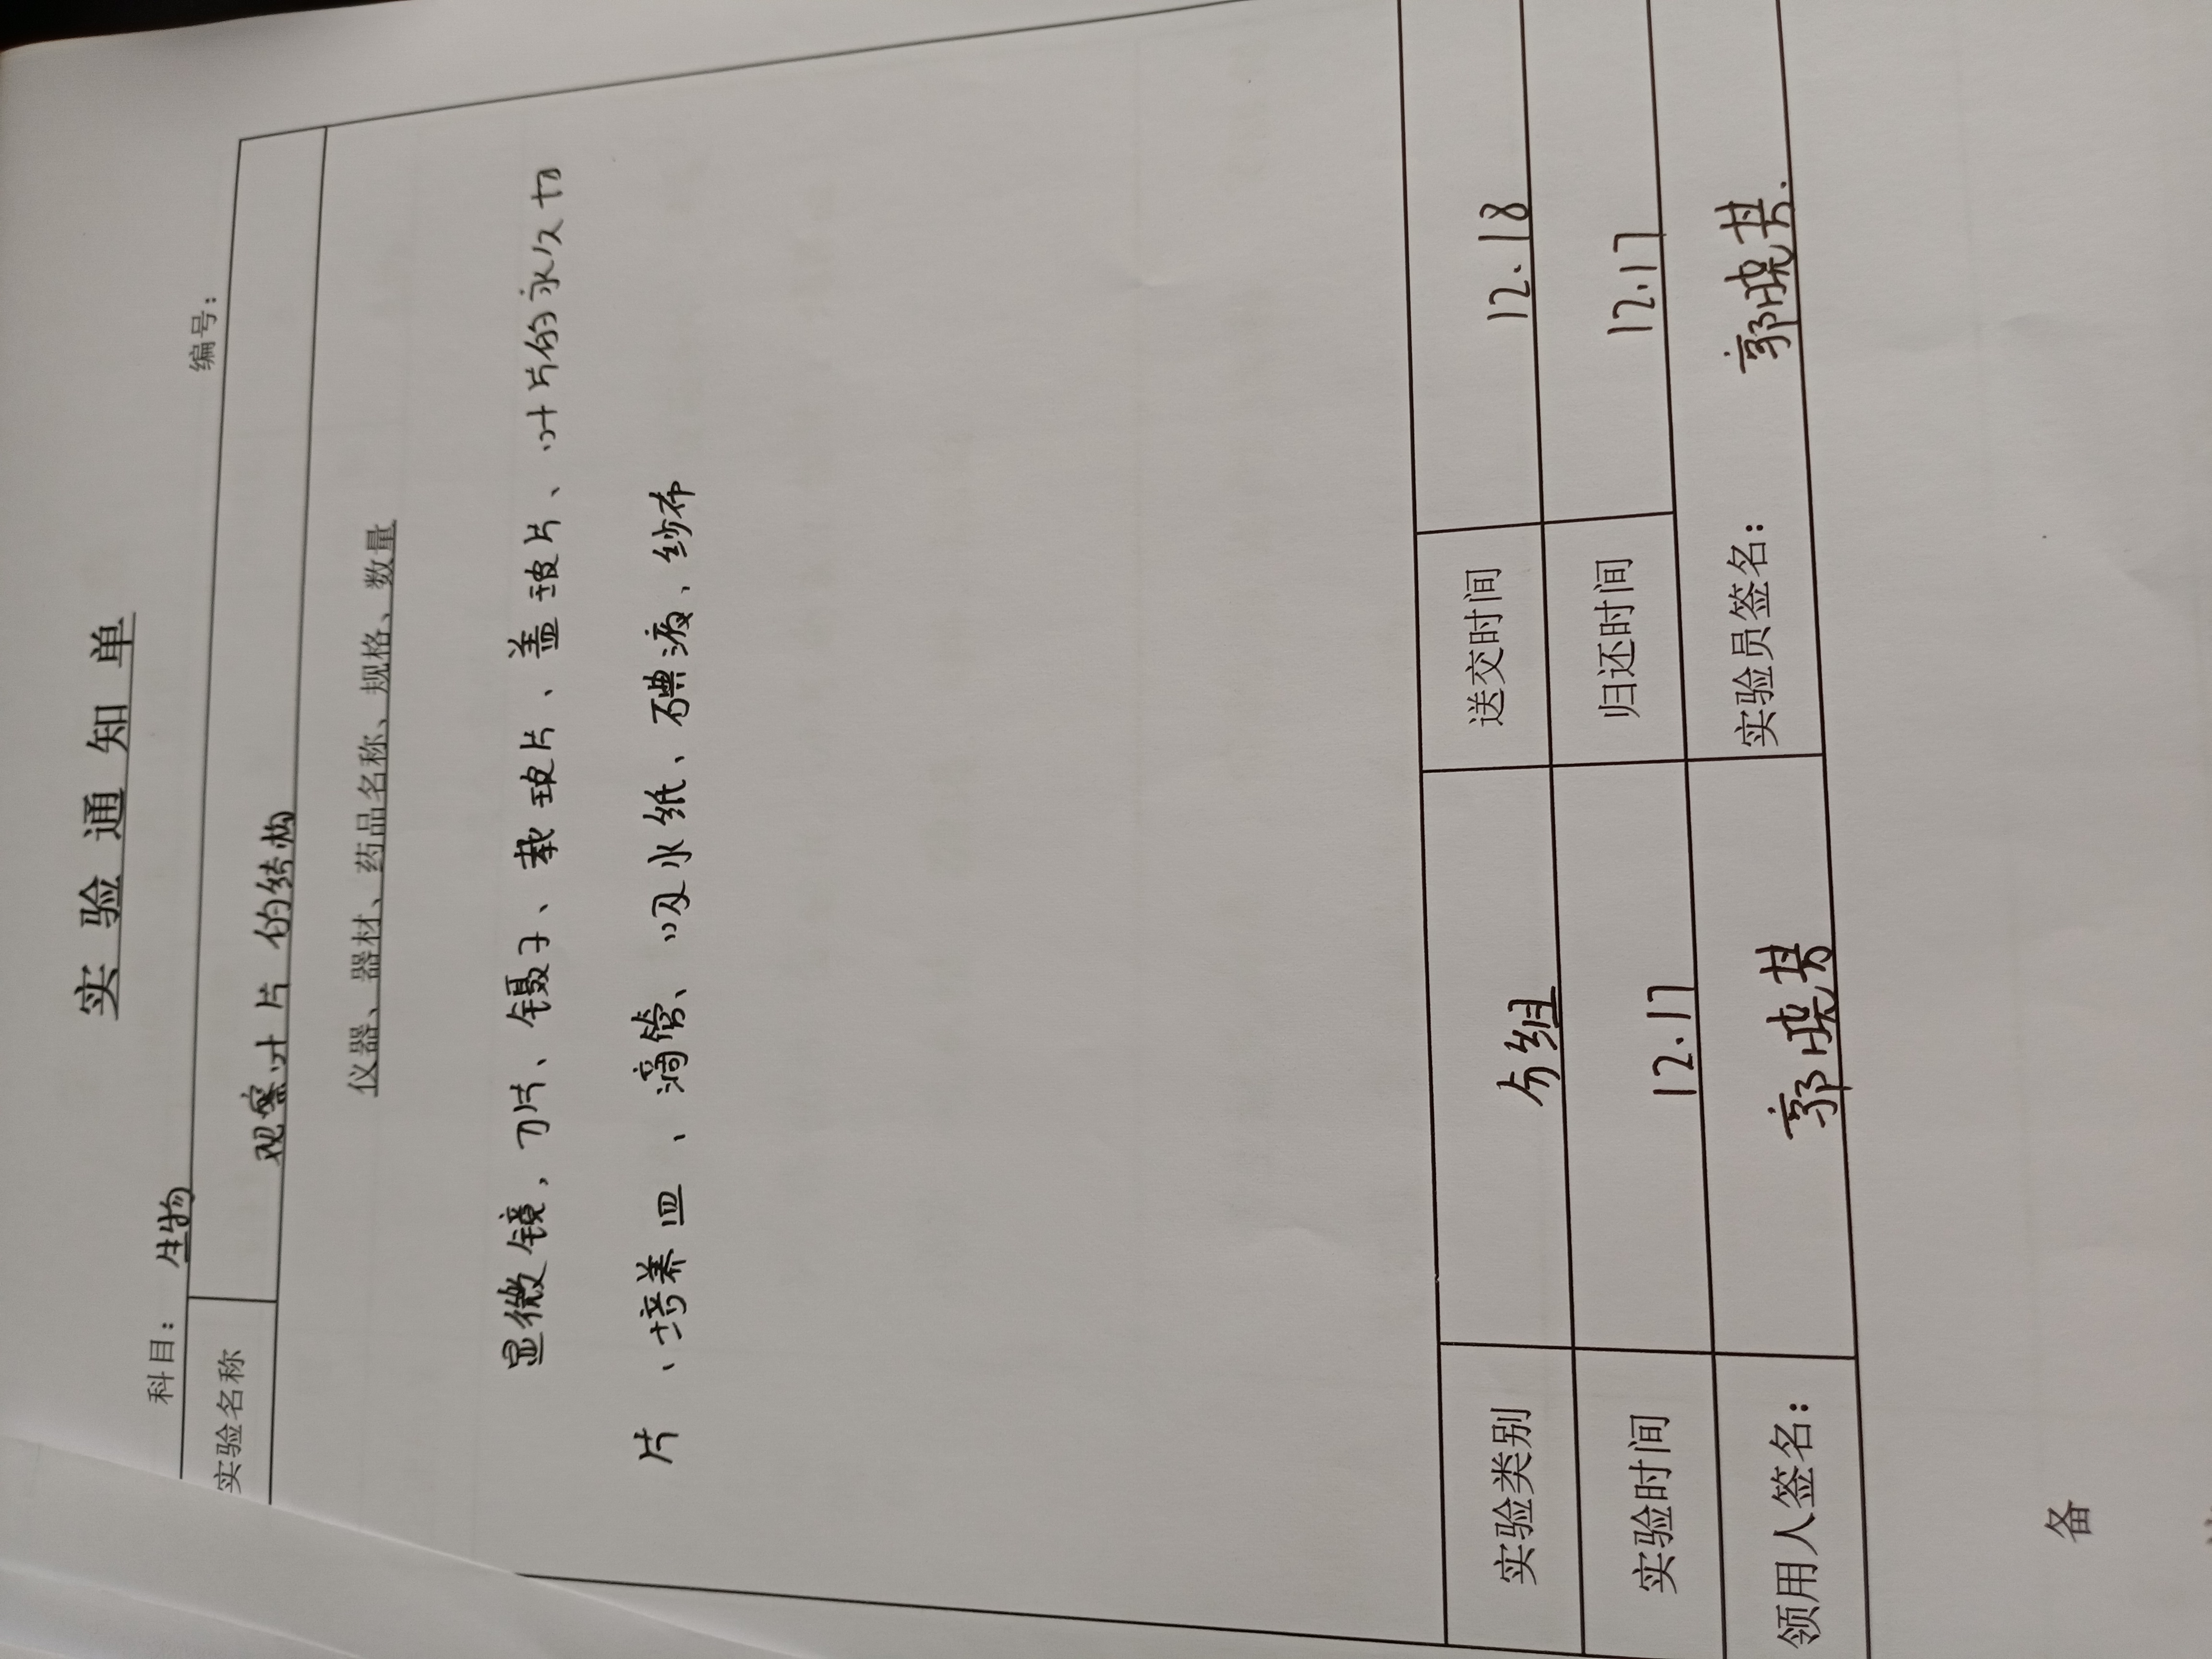 实验通知单
科目：生物 编号：
实验名称 观察叶片的结构
仪器、器材、药品名称、规格、数量
显微镜，刀片、镊子、载玻片、盖玻片、叶片的永久切
片、培养皿、滴管、吸水纸、碘液、纱布
实验类别 分组 送交时间 12.18
实验时间 12.17 归还时间 12.17
领用人签名： 郭晓 实验员签名： 郭晓
备